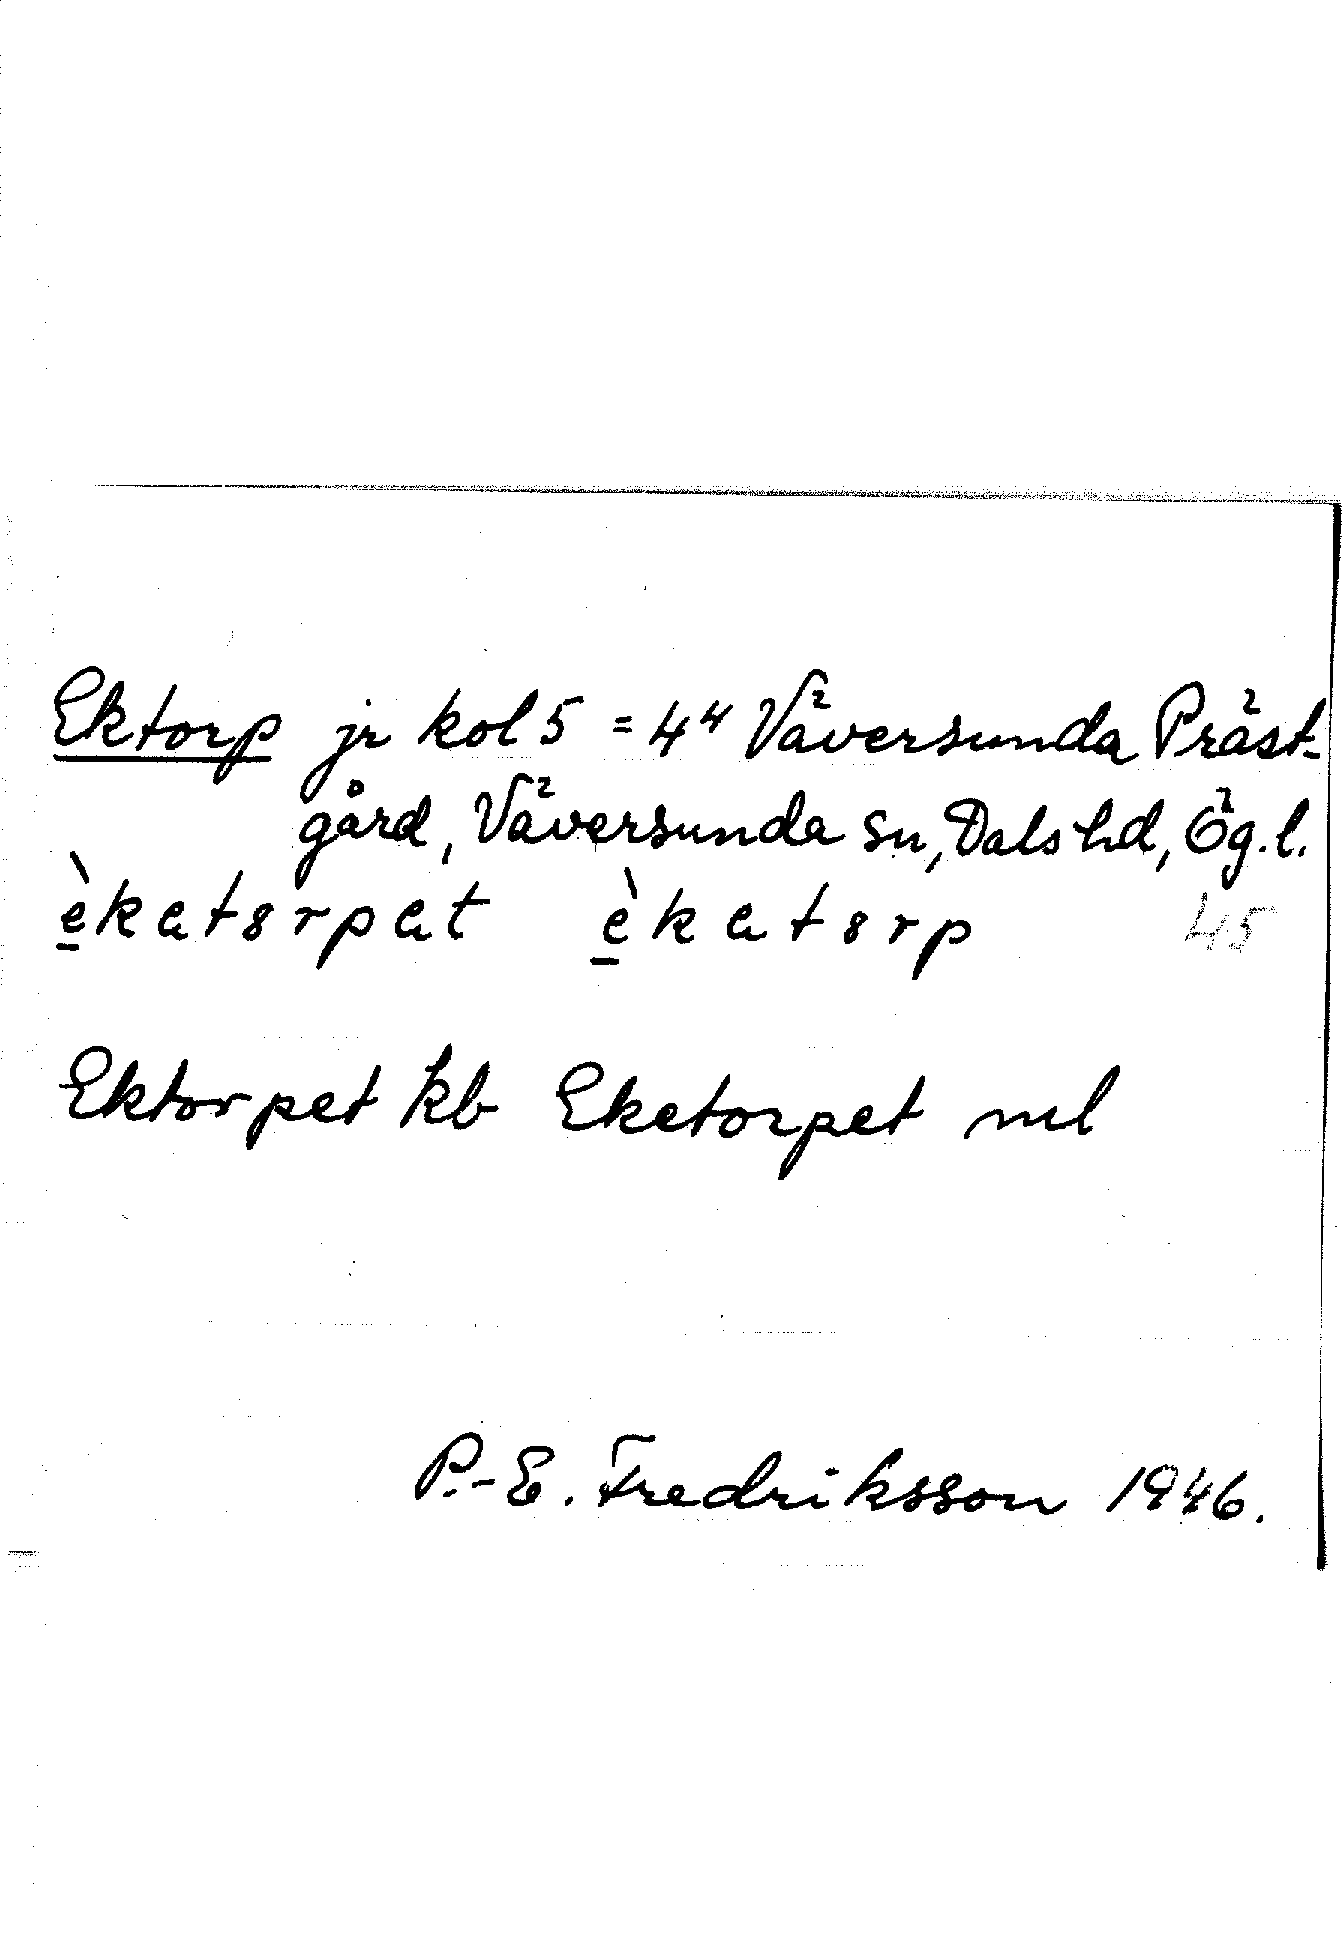 Ektorp jr kol 5 = 4⁴ Väversunda Präst-
gård, Väversunda sn, Dals hd, Ög.l.
èkatȣrpat èkatȣrp 45
Ektorpet kb Eketorpet ml
P.-E. Fredriksson 1946.